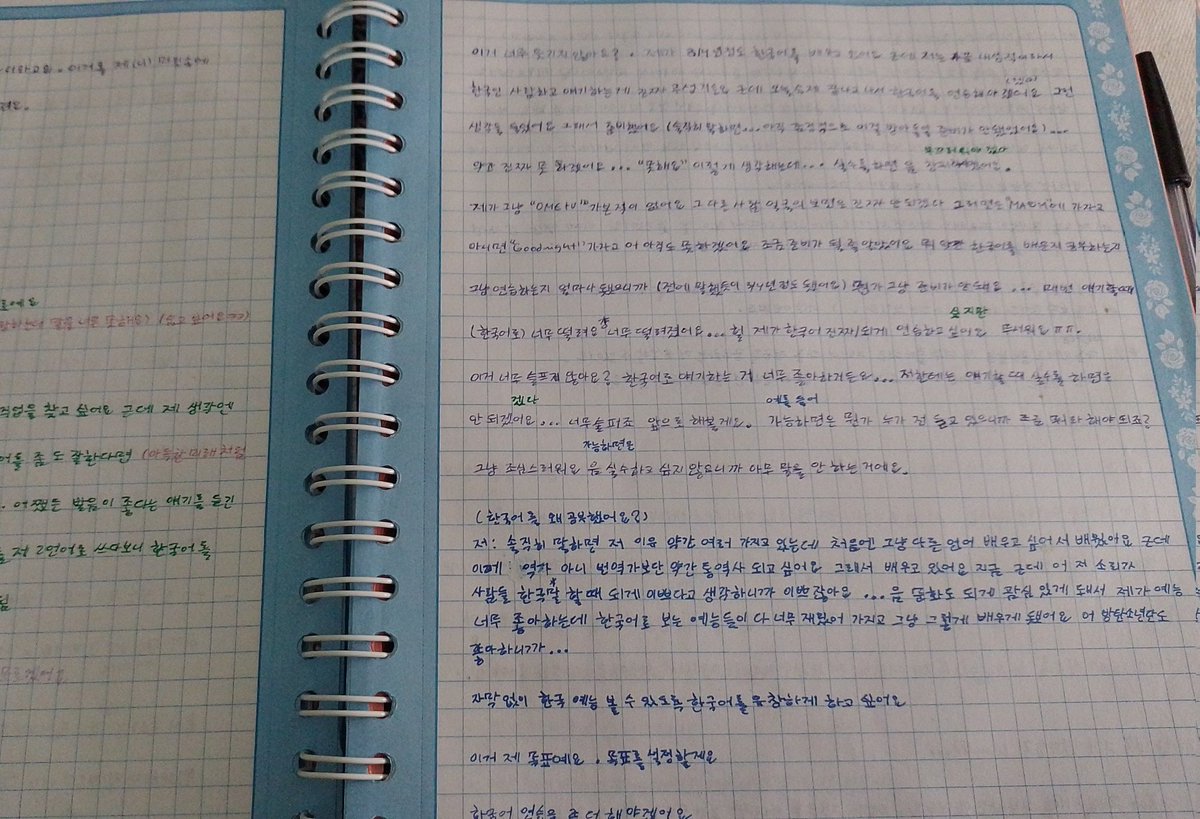 이라고요. 이거를 제(이) 머릿속에
져요.
로에요
싶고 싶어요
직업을 찾고 싶어요 근데 제 생각엔
어를 좀 도 잘한다면 (아득한 미래처럼
. 어쨌든 발음이 좋다는 얘기를 들긴
저 2언어로 쓰다보니 한국어를
됨
모르겠어요
이거 너무 웃기지 않아요? . 제가 3/4년정도 한국어를 배우고 있어요 근데 저는 조금 내성적이라서
한국인 사람하고 얘기하는게 진짜 근데 오늘 한국어를 연습해야겠어요 그런
생각을 했어요 그래서 준비했어요 (솔직히 말하면... 아직 이걸 받아들일 준비가 안됐있어요)...
부끄러워야 겠다
약간 진짜 못 하겠어요... "못해요" 이렇게 생각해는데... 실수를 하면 음
제가 그냥 가본적이 없어요 그 다른 사람 얼굴이 보면은 진짜 안 되겠다 그러면은 가라고
아니면 "Good night!" 가라고 어 아직도 못하겠어요 조금 준비가 될 줄 알았어요 뭐 한국어를 배운지 공부하는지
그냥 연습하는지 얼마나 됐으니까 (전에 말했듯이 3/4년 정도 됐어요) 뭔가 그냥 준비가 안돼요 ... 매번 얘기할때
싶지만
(한국어로) 너무 떨려요 너무 떨려졌어요... 힝 제가 한국어 진짜 되게 연습하고 싶어요 무서워요 ㅠㅠ.
이거 너무 슬프지 않아요? 한국어로 얘기하는 거 너무 좋아하거든요... 저한테는 얘기할 때 실수를 하면은
겠다
예를 들어
안 되겠어요... 너무슬퍼죠 앞으로 해볼게요. 가능하면은 뭔가 누가 전 듣고 있으니까 해야 되죠?
가능하면은
그냥 조심스러워요 음 실수하고 싶지 않으니까 아무 말을 안 하는 거에요.
(한국어를 왜 공부했어요?)
저: 솔직히 말하면 저 이유 약간 여러 가지고 있는데 처음엔 그냥 다른 언어 배우고 싶어서 배웠어요 근데
이제: 역자 아니 번역가보단 약간 통역사 되고 싶어요 그래서 배우고 있어요 지금 근데 어 저 소리가
사람들 한국말 할 때 되게 이쁘다고 생각하니까 이쁘잖아요 ... 음 문화도 되게 관심 있게 돼서 제가 예능
너무 좋아하는데 한국어로 보는 예능들이 다 너무 재밌어 가지고 그냥 그렇게 배우게 됐어요 어 방탄소년단도
좋아하니까...
자막 없이 한국 예능 볼 수 있도록 한국어를 유창하게 하고 싶어요
이거 제 목표예요 . 목표를 설정할게요
한국어 연습을 좀 더 해야겠어요